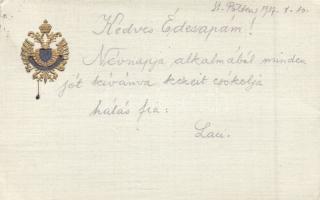 St. Pölten, 1917. X. 10.
Kedves Édesapám!
Névnapja alkalmából minden
jót kívánva kezeit csókolja
hálás fia:
Laci.